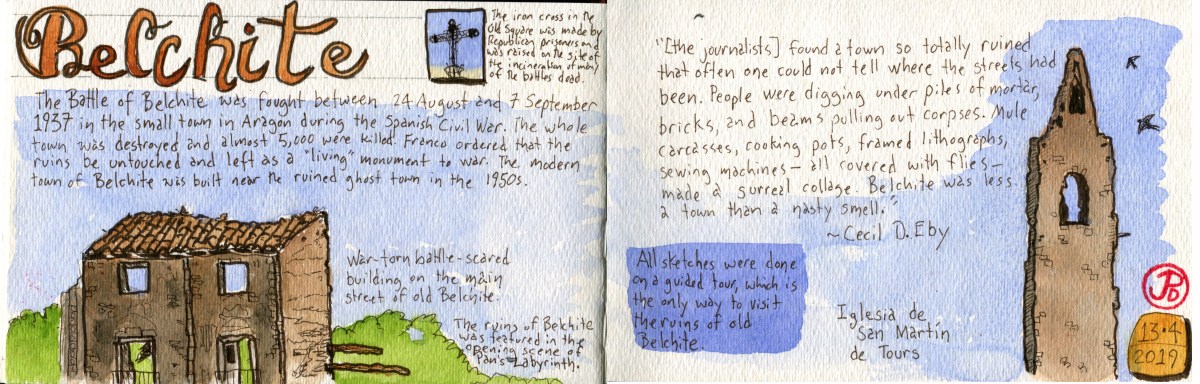 Belchite
The iron cross in the
Old Square was made by
Republican prisoners and
was raised on the site of
the incineration of many
of the battles dead.
The Battle of Belchite was fought between 24 August and 7 September
1937 in the small town in Aragon during the Spanish Civil War. The whole
town was destroyed and almost 5,000 were killed. Franco ordered that the
ruins be untouched and left as a "living" monument to war. The modern
town of Belchite was built near the ruined ghost town in the 1950s.
War-torn battle-scared
building on the main
street of old Belchite.
The ruins of Belchite
was featured in the
opening scene of
Pan's Labyrinth.
"[the journalists] found a town so totally ruined
that often one could not tell where the streets had
been. People were digging under piles of mortar,
bricks, and beams pulling out corpses. Mule
carcasses, cooking pots, framed lithographs,
sewing machines — all covered with flies —
made a surreal collage. Belchite was less
a town than a nasty smell."
~Cecil D. Eby
All sketches were done
on a guided tour, which is
the only way to visit
the ruins of old
Belchite.
Iglesia de
San Martín
de Tours
JPD
13·4
2019